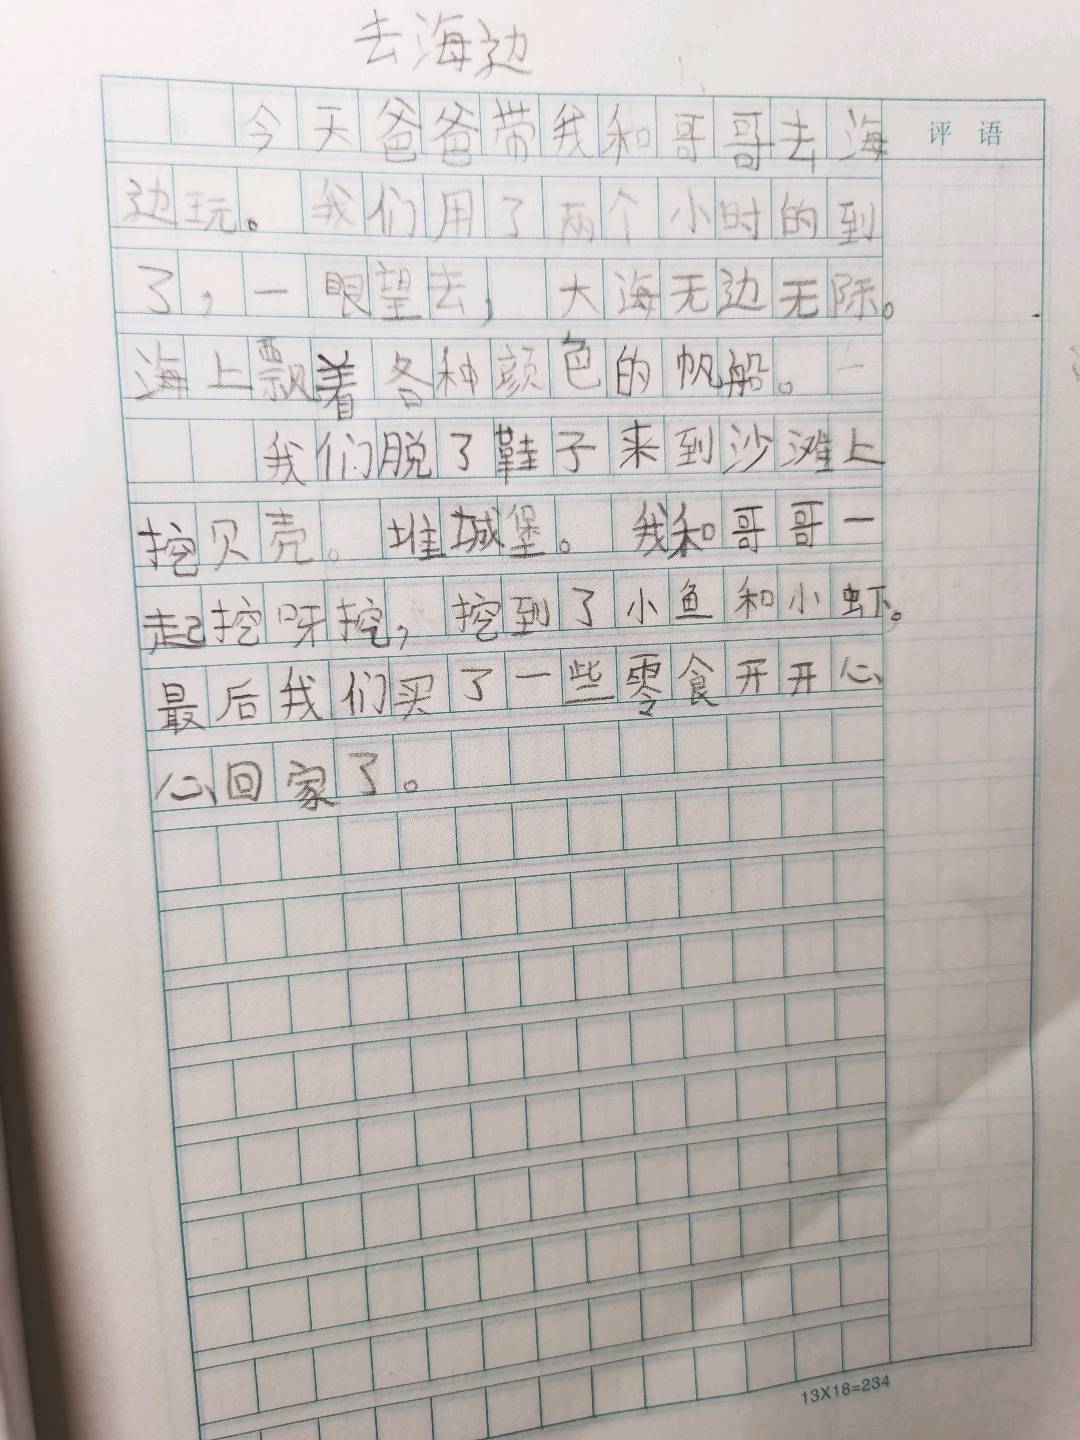 去海边
今天爸爸带我和哥哥去海
评语
边玩。我们用了两个小时的到
了，一眼望去，大海无边无际。
海上飘着各种颜色的帆船。一
我们脱了鞋子来到沙滩上
挖贝壳。堆城堡。我和哥哥一
起挖呀挖，挖到了小鱼和小虾。
最后我们买了一些零食开开心
心回家了。
13X18=234